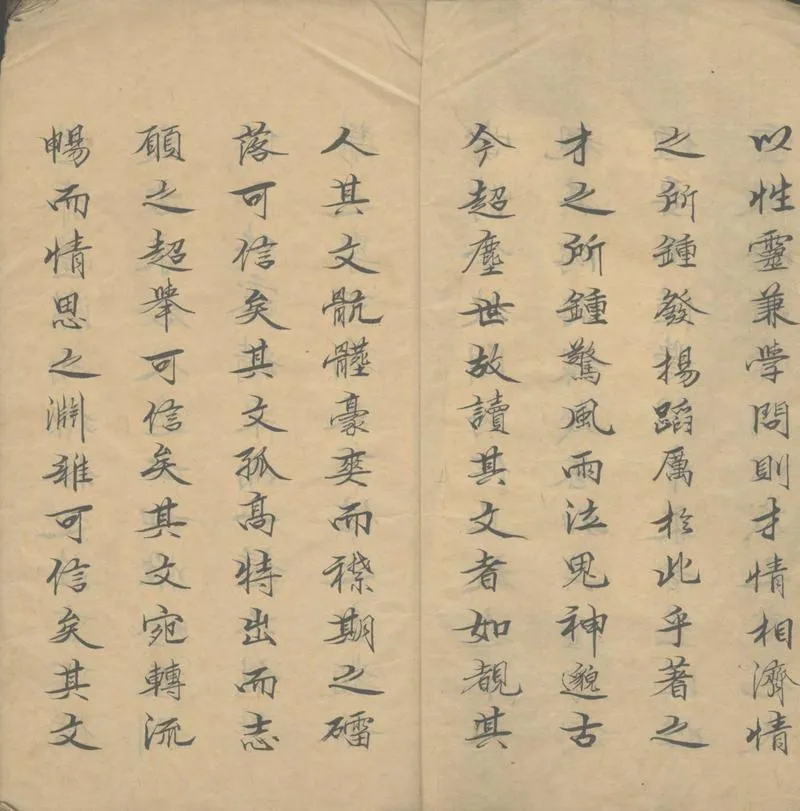 以性靈兼學問則才情相濟情
之所鍾發揚蹈厲於此乎著之
才之所鍾驚風雨泣鬼神邈古
今超塵世故讀其文者如覩其
人其文骯髒豪爽而襟期之礌
落可信矣其文孤高特出而志
願之超舉可信矣其文宛轉流
暢而情思之淵雅可信矣其文